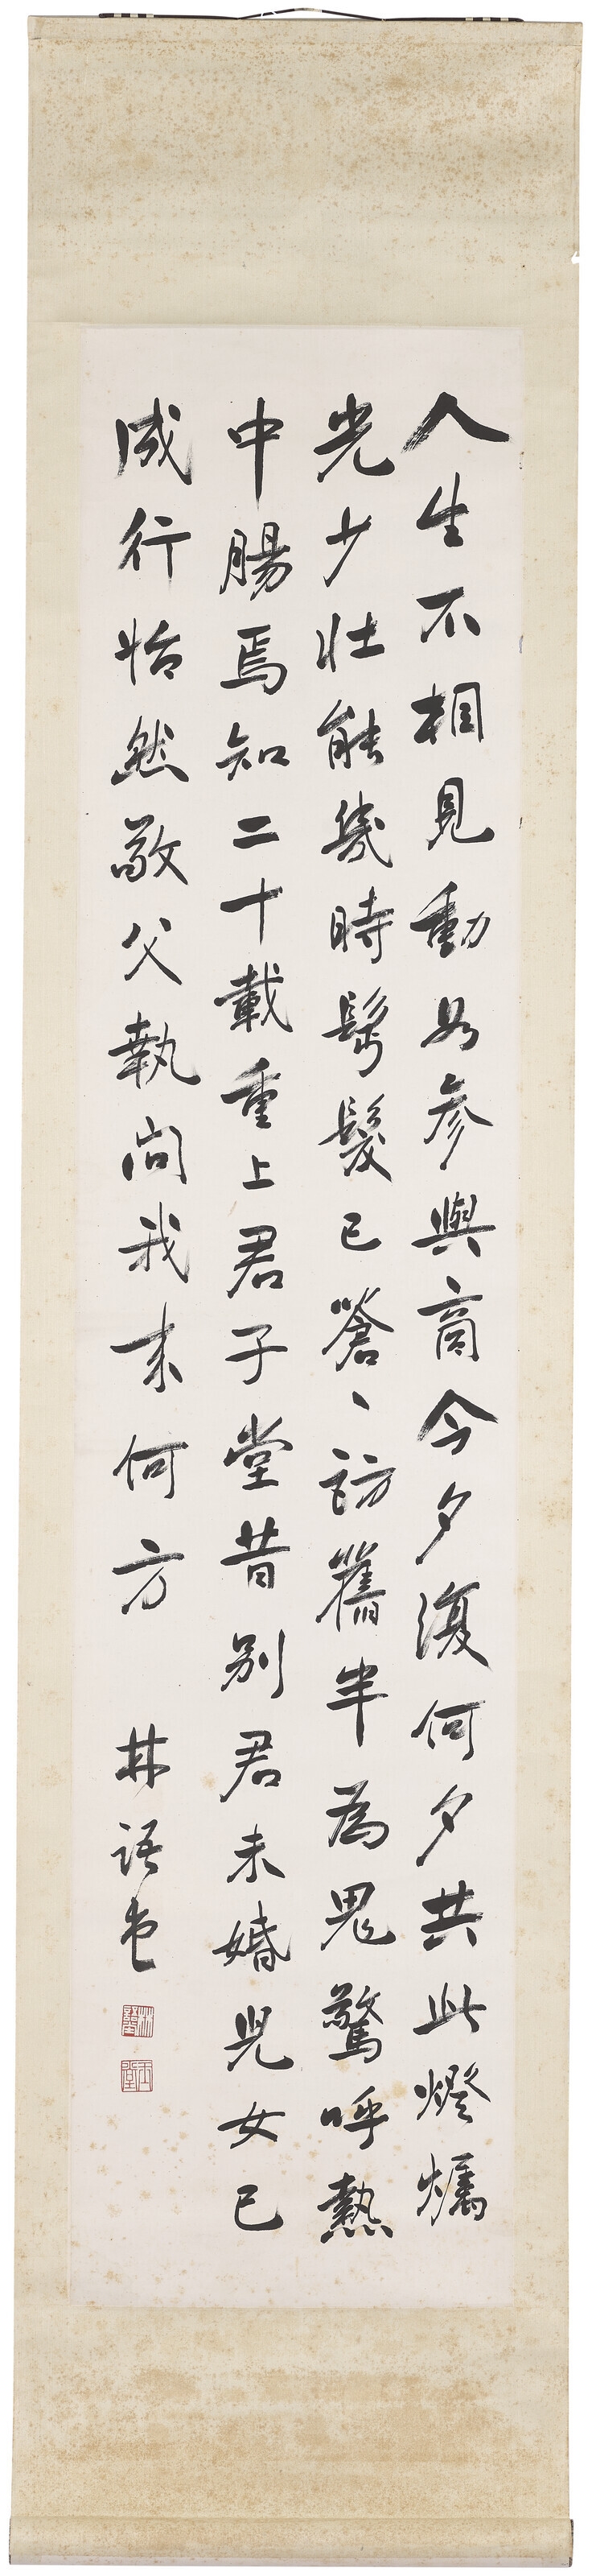 人生不相見動如參與商今夕復何夕共此燈燭
光少壯能幾時鬢髮已蒼丶訪舊半為鬼驚呼熱
中腸焉知二十載重上君子堂昔別君未婚兒女已
成行怡然敬父執問我來何方
林語堂